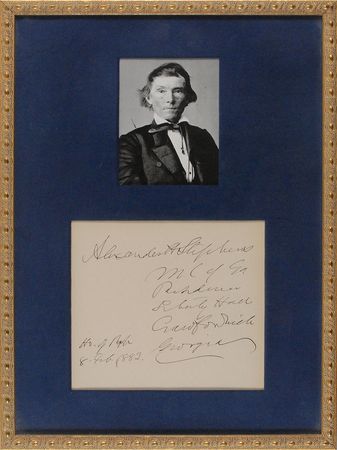 Alexander H Stephens
M C of Ga
Residence
Liberty Hall
Crawfordville
Georgia
Ho. of Rep
8 Feb 1882.